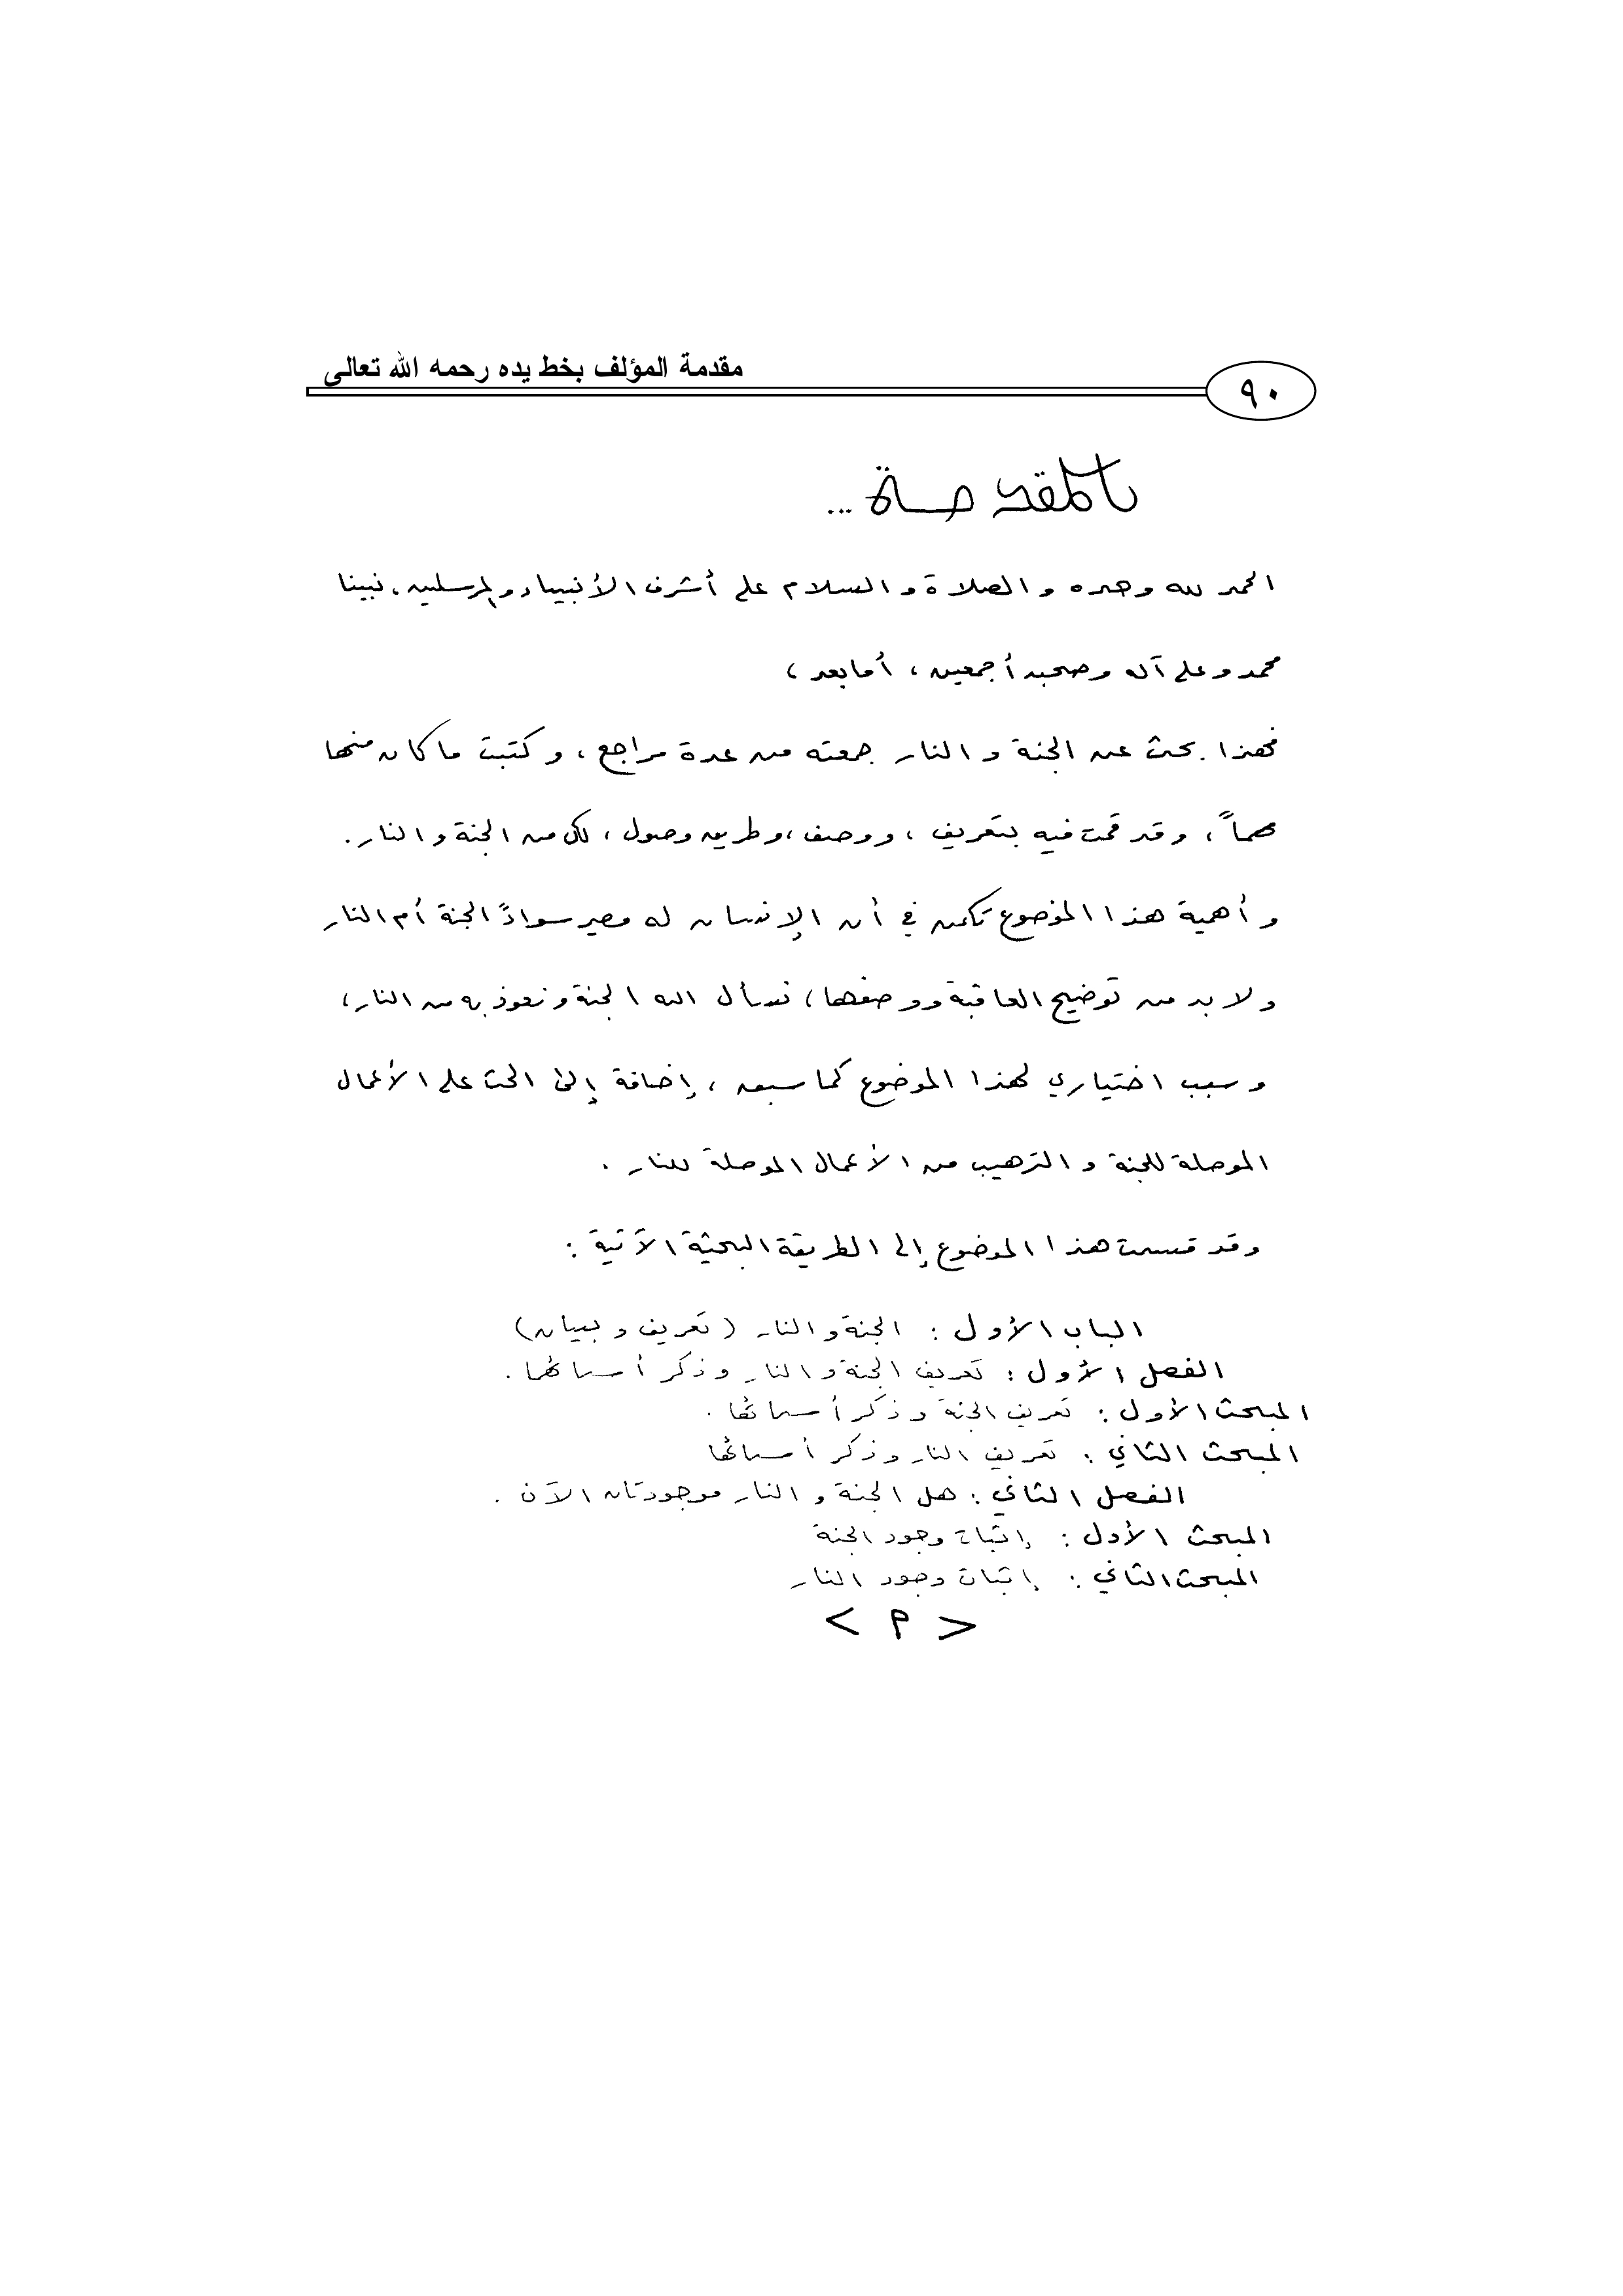 مقدمة المؤلف بخط يده رحمه الله تعالى
٩٠
المقدمة ...
الحمد لله وحده و الصلاة و السلام على أشرف الأنبياء والمرسلين، نبينا
محمد وعلى آله وصحبه أجمعين ، أما بعد ،
فهذا بحث عن الجنة و النار جمعته من عدة مراجع ، وكتبت ما كان منها
مهماً ، وقد قمت فيه بتعريف ، ووصف ، وطريق وصول ، لكل من الجنة و النار .
و أهمية هذا الموضوع تكمن في أن الإنسان له مصير سواءً الجنة أم النار
ولا بد من توضيح العاقبة ووصفها ، نسأل الله الجنة ونعوذ به من النار ،
و سبب اختياري لهذا الموضوع كما سبق ، إضافة إلى الحث على الأعمال
الموصلة للجنة و الترهيب من الأعمال الموصلة للنار .
وقد قسمت هذا الموضوع إلى الطريقة البحثية الآتية :
الباب الأول : الجنة و النار ( تعريف و بيان )
الفصل الأول : تعريف الجنة و النار و ذكر أسمائهما .
المبحث الأول : تعريف الجنة و ذكر أسمائها .
المبحث الثاني : تعريف النار و ذكر أسمائها
الفصل الثاني : هل الجنة و النار موجودتان الآن .
المبحث الأول : إثبات وجود الجنة
المبحث الثاني : إثبات وجود النار
< م >